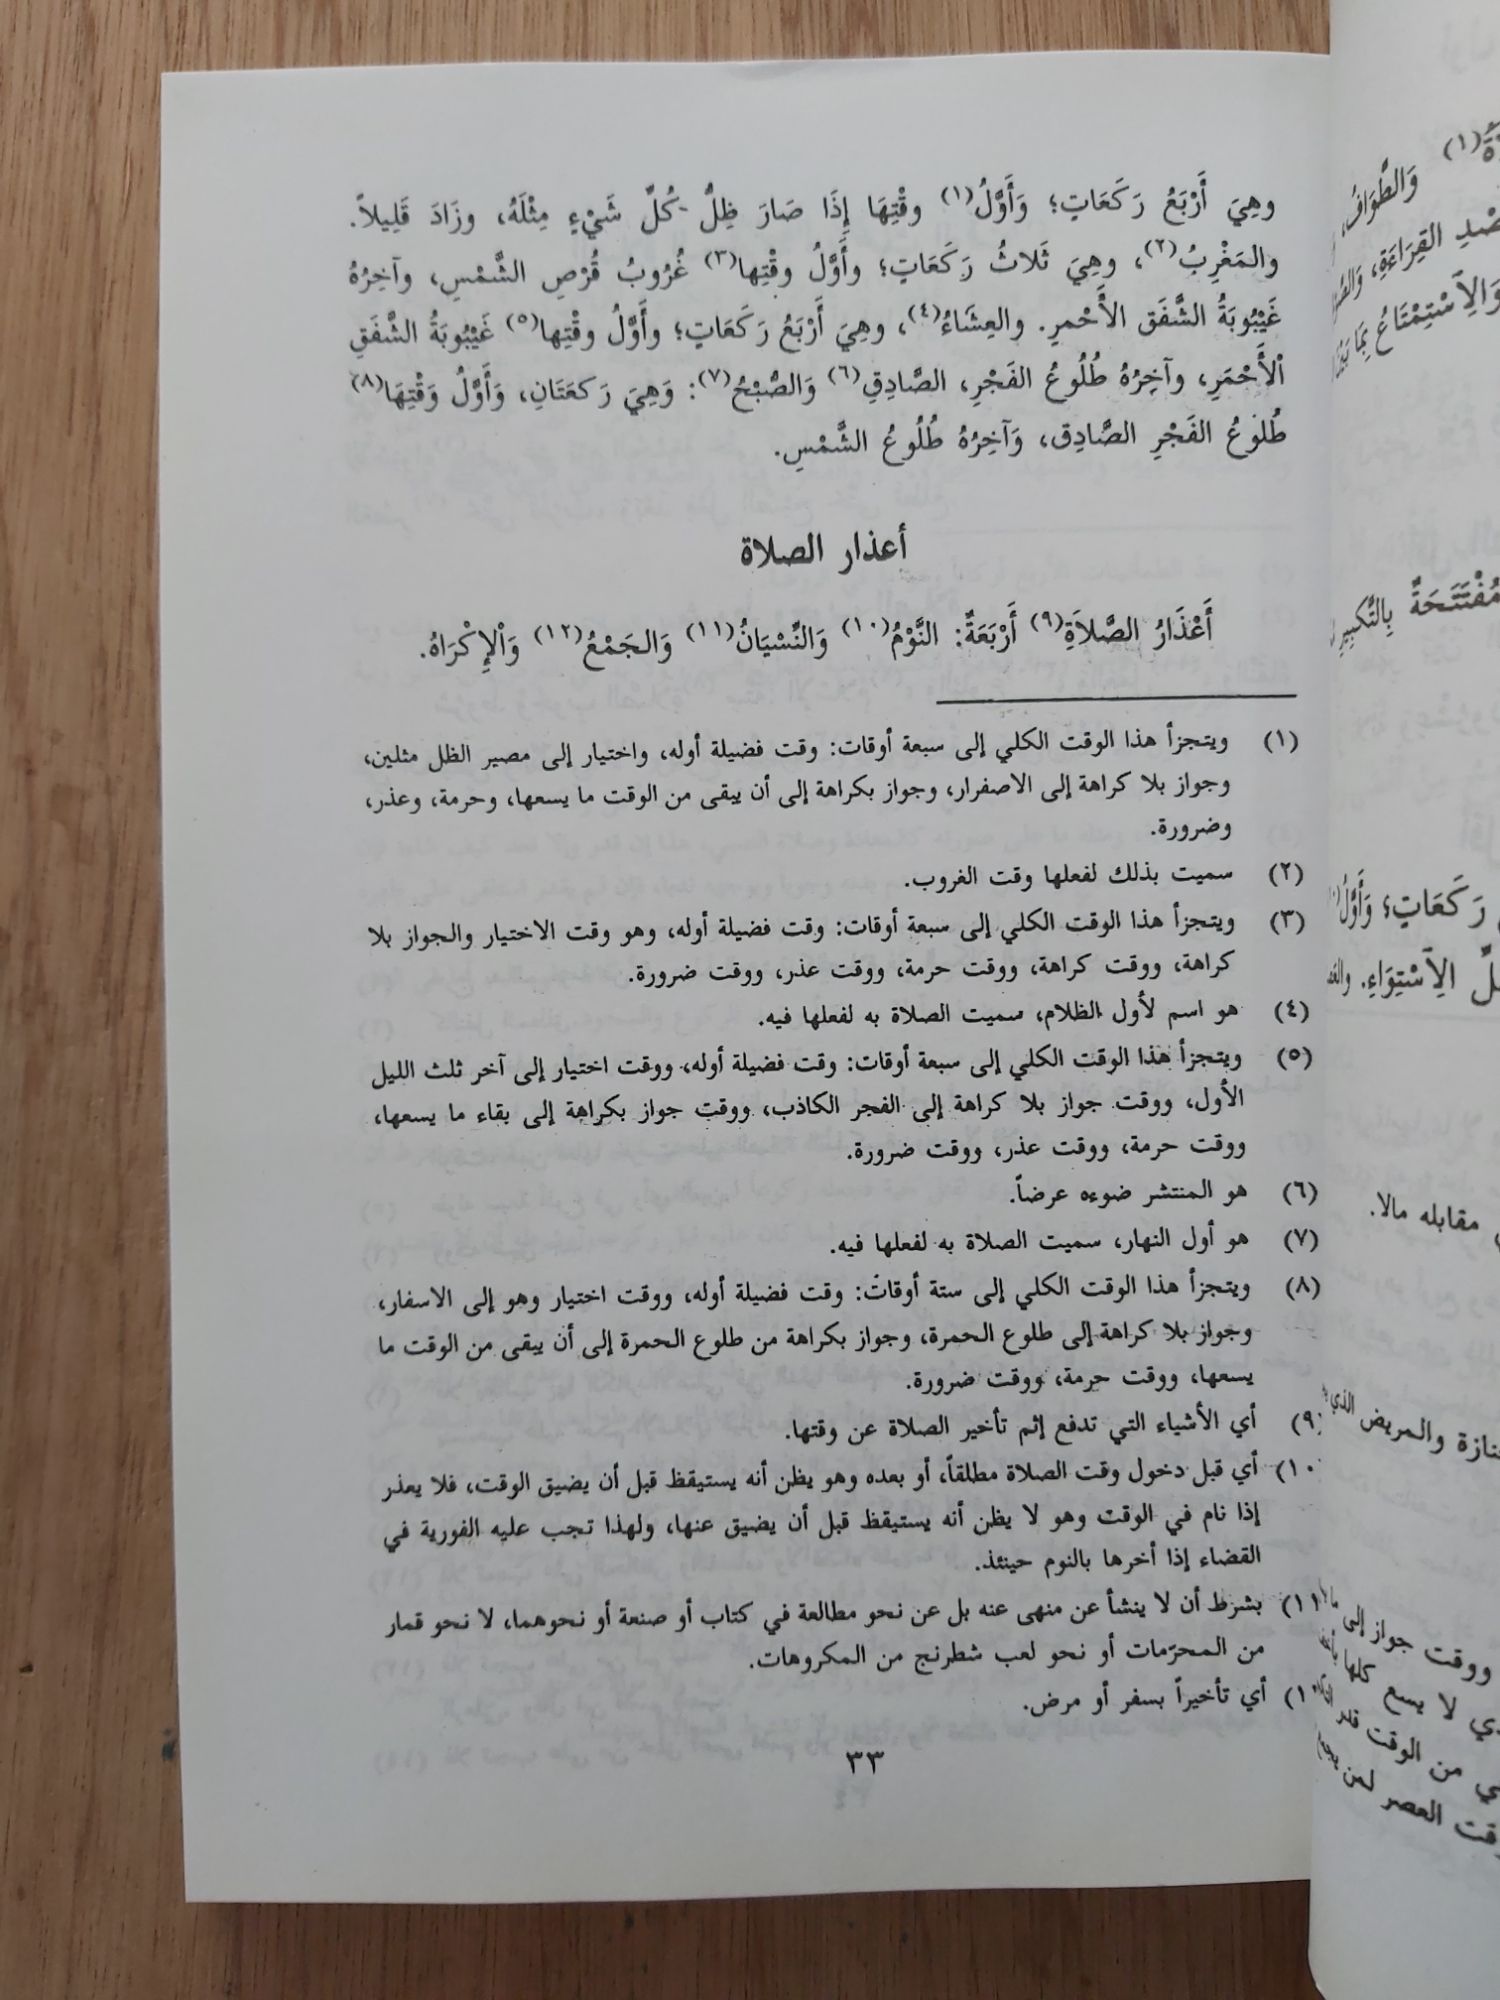 وهِيَ أَرْبَعُ رَكَعَاتٍ؛ وَأَوَّلُ(١) وقْتِهَا إِذَا صَارَ ظِلُّ كُلِّ شَيْءٍ مِثْلَهُ، وزَادَ قَلِيلاً.
والمَغْرِبُ(٢)، وهِيَ ثَلاثُ رَكَعَاتٍ؛ وأَوَّلُ وقْتِها(٣) غُرُوبُ قُرْصِ الشَّمْسِ، وآخِرُهُ
غَيْبُوبَةُ الشَّفَقِ الأَحْمرِ. والعِشَاءُ(٤)، وهِيَ أَرْبَعُ رَكَعَاتٍ؛ وأَوَّلُ وقْتِها(٥) غَيْبُوبَةُ الشَّفَقِ
الْأَحْمَرِ، وآخِرُهُ طُلُوعُ الفَجْرِ، الصَّادِقِ(٦) وَالصُّبْحُ(٧): وَهِيَ رَكعَتَانِ، وَأَوَّلُ وَقْتِهَا(٨)
طُلُوعُ الفَجْرِ الصَّادِق، وَآخِرُهُ طُلُوعُ الشَّمْسِ.
أعذار الصلاة
أَعْذَارُ الصَّلاَةِ(٩) أَرْبَعَةٌ: النَّوْمُ(١٠) وَالنِّسْيَانُ(١١) وَالجَمْعُ(١٢) وَالْإِكْرَاهُ.
(١) ويتجزأ هذا الوقت الكلي إلى سبعة أوقات: وقت فضيلة أوله، واختيار إلى مصير الظل مثلين،
وجواز بلا كراهة إلى الاصفرار، وجواز بكراهة إلى أن يبقى من الوقت ما يسعها، وحرمة، وعذر،
وضرورة.
(٢) سميت بذلك لفعلها وقت الغروب.
(٣) ويتجزأ هذا الوقت الكلي إلى سبعة أوقات: وقت فضيلة أوله، وهو وقت الاختيار والجواز بلا
كراهة، ووقت كراهة، ووقت حرمة، ووقت عذر، ووقت ضرورة.
(٤) هو اسم لأول الظلام، سميت الصلاة به لفعلها فيه.
(٥) ويتجزأ هذا الوقت الكلي إلى سبعة أوقات: وقت فضيلة أوله، ووقت اختيار إلى آخر ثلث الليل
الأول، ووقت جواز بلا كراهة إلى الفجر الكاذب، ووقت جواز بكراهة إلى بقاء ما يسعها،
ووقت حرمة، ووقت عذر، ووقت ضرورة.
(٦) هو المنتشر ضوءه عرضاً.
(٧) هو أول النهار، سميت الصلاة به لفعلها فيه.
(٨) ويتجزأ هذا الوقت الكلي إلى ستة أوقات: وقت فضيلة أوله، ووقت اختيار وهو إلى الاسفار،
وجواز بلا كراهة إلى طلوع الحمرة، وجواز بكراهة من طلوع الحمرة إلى أن يبقى من الوقت ما
يسعها، ووقت حرمة، ووقت ضرورة.
(٩) أي الأشياء التي تدفع إثم تأخير الصلاة عن وقتها.
(١٠) أي قبل دخول وقت الصلاة مطلقاً، أو بعده وهو يظن أنه يستيقظ قبل أن يضيق الوقت، فلا يعذر
إذا نام في الوقت وهو لا يظن أنه يستيقظ قبل أن يضيق عنها، ولهذا تجب عليه الفورية في
القضاء إذا أخرها بالنوم حينئذ.
(١١) بشرط أن لا ينشأ عن منهى عنه بل عن نحو مطالعة في كتاب أو صنعة أو نحوهما، لا نحو قمار
من المحرّمات أو نحو لعب شطرنج من المكروهات.
(١ أي تأخيراً بسفر أو مرض.
٣٣
(١) وَالطَّوَافُ،
القِرَاءَةِ،
وَالِاسْتِمْتَاعُ بِمَا
مُفْتَتَحَةٌ بِالتَّكْبِيرِ
رَكَعَاتٍ؛ وَأَوَّلُ
الِاسْتِوَاءِ.
مقابله مالا.
والمريض الذي
ووقت جواز إلى
لا يسع كلها
من الوقت قدر
العصر لمن